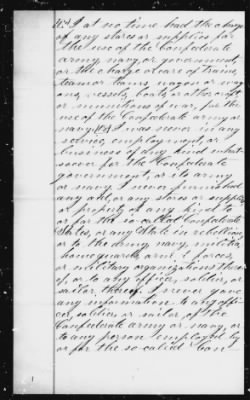 16th I at no time had the charge
of any stores or supplies for
the use of the Confederate
army navy or government,
or the charge or care of trains,
teams wagon or wag
ons, vessels, boats, or other craft
or munitions of war, for the
use of the Confederate army or
navy. I was never in any
service, employment or
business of any kind whatso-
ever for the Confederate
government, or its army
or navy I never furnished
any aid, or any stores or supplies
or property of any kind to
or for the so called Confederate
States, or any State in rebellion,
or to the army, navy, militia
home guards, armed forces,
or military organizations there
of, or to any officer, soldier, or
sailor, thereof. I never gave
any information to any offi-
cer, soldier or sailor of the
Confederate army or navy, or
to any person employed by
or for the so called Con